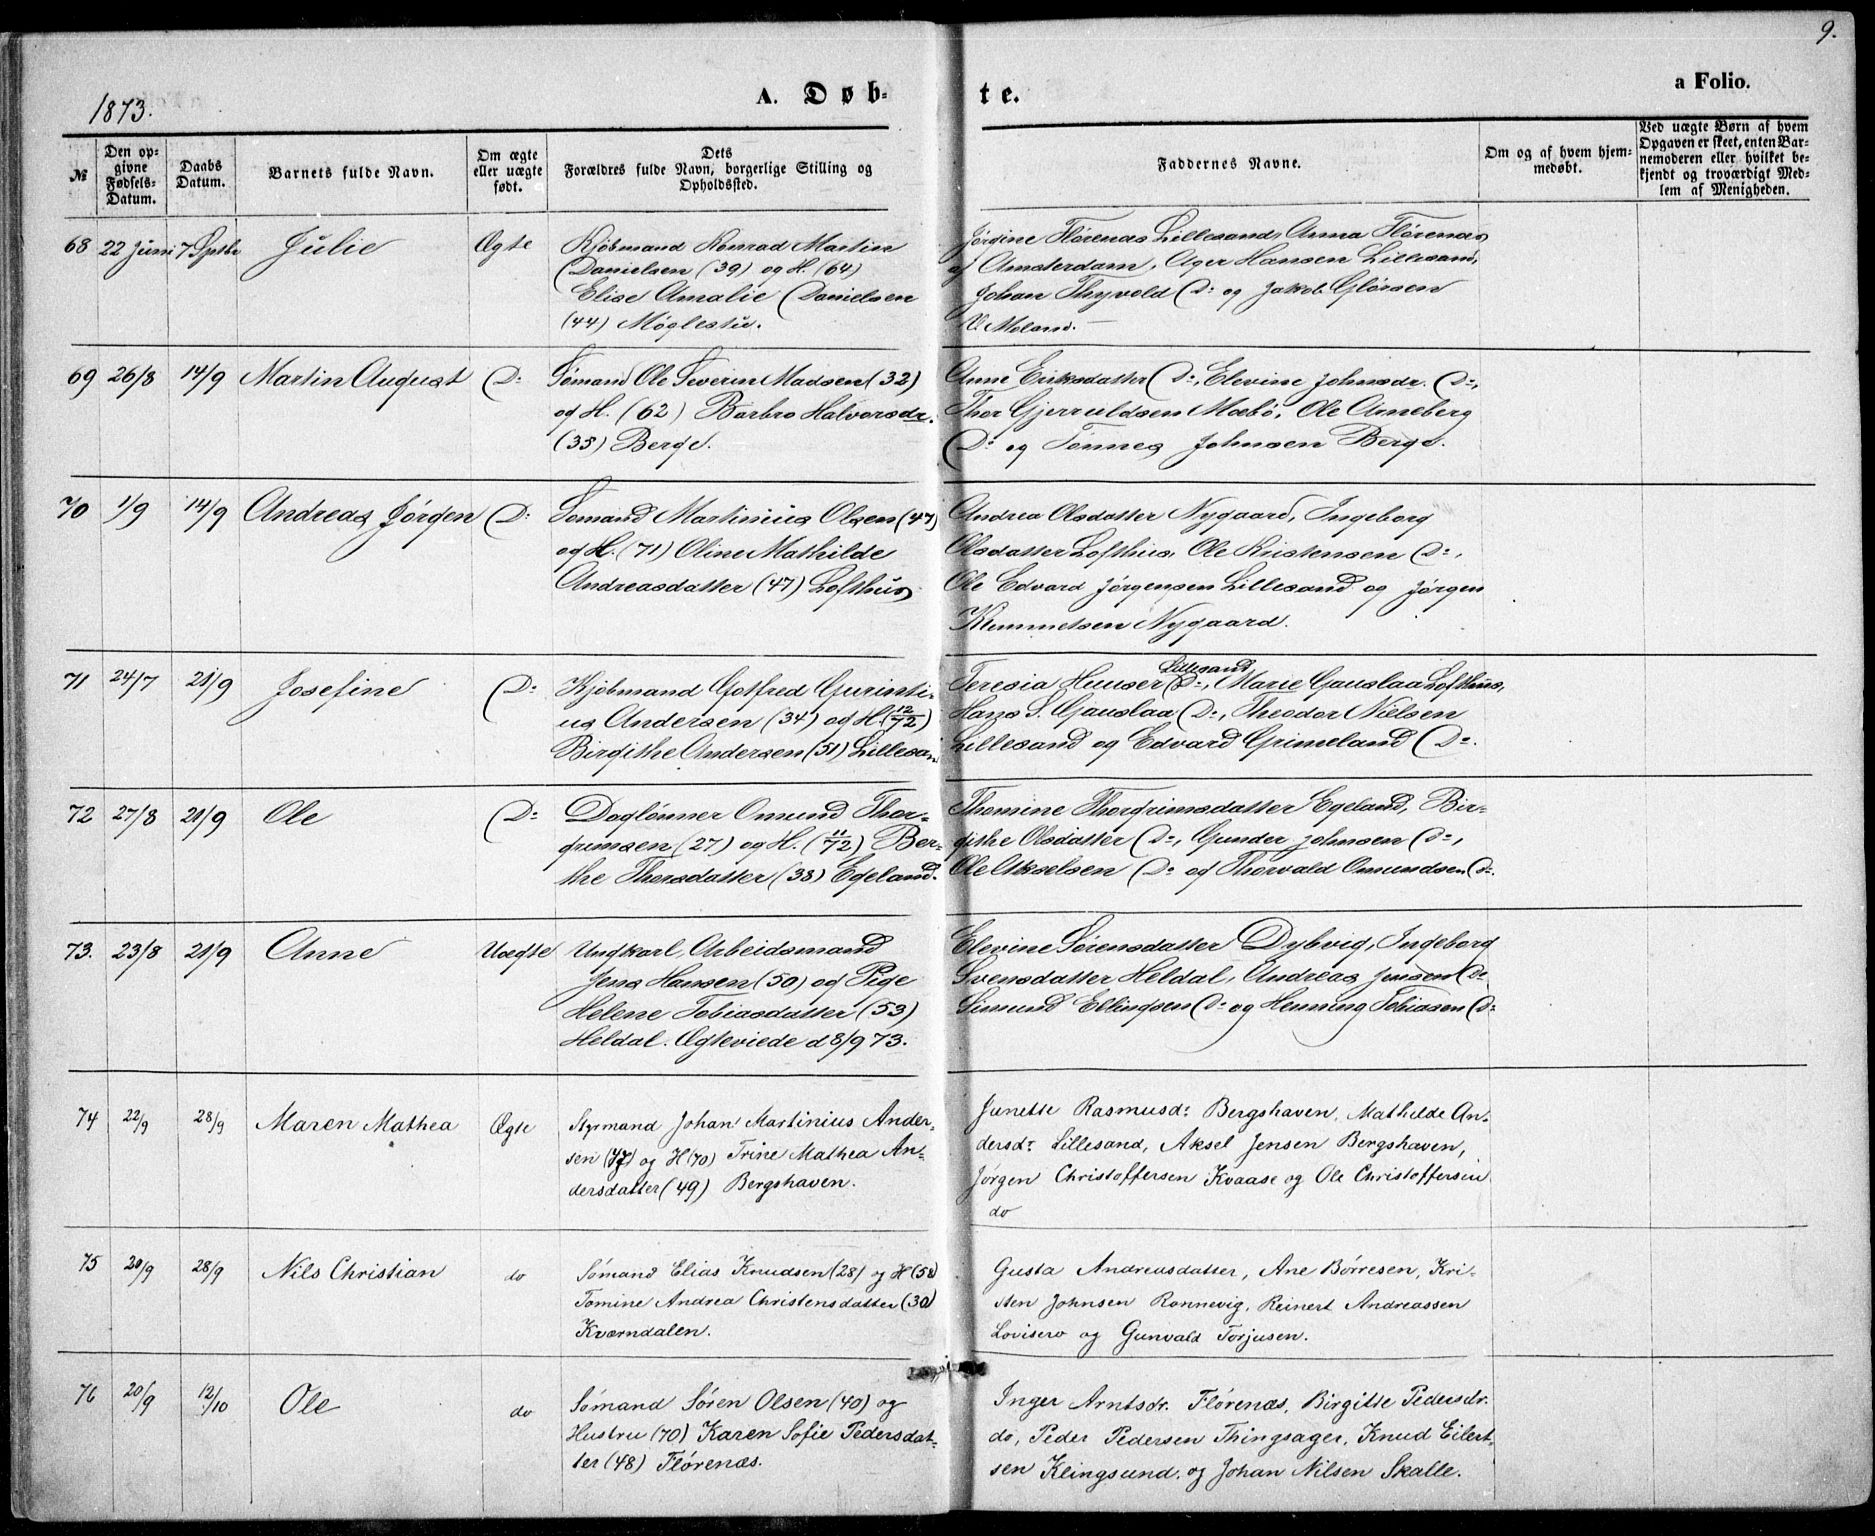 9.
1873.
A. Døb-
te.
a Folio.
№
Den op-
givne
Fødsels-
Datum.
Daabs
Datum.
Barnets fulde Navn.
Om ægte
eller uægte
født.
Dets
Forældres fulde Navn, borgerlige Stilling og
Opholdssted.
Faddernes Navne.
Om og af hvem hjem-
medøbt.
Ved uægte Børn af hvem
Opgaven er skeet, enten Bar-
nemoderen eller hvilket be-
kjendt og troværdigt Med-
lem af Menigheden.
68 22 Juni 7 Sptbr Julie Ægte
Kjøbmand Konrad Martin
Danielsen (39) og H. (64)
Elise Amalie Danielsen
(44) Møglestu.
Jørgine Flørenæs Lillesand, Anna Flørenæs
af Amsterdam, Ager Hansen Lillesand,
Johan Thyvold Do og Jakob
V. Moland.
69 26/8 14/9 Martin August Do
Sømand Ole Severin Madsen (32)
og H. (62) Barbro Halvorsdr.
(35) Berge.
Anne Eriksdatter Do, Elevine Johnsdr. Do,
Thor Gjeruldsen Mæbø, Ole Arneberg
Do og Tønnes Johnsen Berge.
70 1/9 14/9 Andreas Jørgen Do
Sømand Martinius Olsen (47)
og H. (71) Oline Mathilde
Andreasdatter (47) Lofthus
Andrea Olsdatter Nygaard, Ingeborg
Olsdatter Lofthus, Ole Kristensen Do,
Ole Edvard Jørgensen Lillesand og Jørgen
Klemmetsen Nygaard.
71 24/7 21/9 Josefine Do
Kjøbmand Gotfred Gurinti-
us Andersen (34) og H. (12/72)
Birgithe Andersen (51) Lillesan
Lillesand
Teresia Heuser Do, Marie Gauslaa Lofthus,
Hans S. Gauslaa Do, Theodor Nielsen
Lillesand og Edvard Grimeland Do.
72 27/8 21/9 Ole Do
Daglønner Omund Thor-
grimsen (27) og H. (11/72) Ber-
the Thorsdatter (38) Egeland.
Thomine Thorgrimsdatter Egeland, Bir-
githe Olsdatter Do, Gunder Johnsen Do,
Ole Akselsen Do og Thorvald Omundsen Do.
73. 23/8 21/9 Anne Uægte
Ungkarl, Arbeidsmand
Jens Hansen (50) og Pige
Helene Tobiasdatter (53)
Heldal. Ægteviede d 8/9 73.
Elevine Sørensdatter Dybvig, Ingeborg
Svensdatter Heldal, Andreas Jensen Do
Simund Ellingsen Do og Henning Tobiasen Do
74 22/9 28/9 Maren Mathea Ægte
Styrmand Johan Martinius Ander-
sen (47) og H (70) Trine Mathea An-
dersdatter (49) Bergshaven.
Janette Rasmusdr Bergshaven, Mathilde An-
dersdr Lillesand, Aksel Jensen Bergshaven,
Jørgen Christoffersen Kvaase og Ole Christoffersen
do
75 20/9 28/9 Nils Christian do
Sømand Elias Knudsen (28) og H (58)
Tomine Andrea Christensdatter (30)
Kværndalen.
Gusta Andreasdatter, Ane Børresen, Kri-
sten Johnsen Rønnevig, Reinert Andreassen
og Gunvald Torjusen.
76 20/9 12/10 Ole do
Sømand Søren Olsen (40) og
Hustru (70) Karen Sofie Pedersdat-
ter (48) Flørenæs.
Inger Arntsdr. Flørenæs, Birgitte Pedersdr.
do, Peder Pedersen Thingsager, Knud Eilert-
sen Klingsund, og Johan Nilsen Skalle.